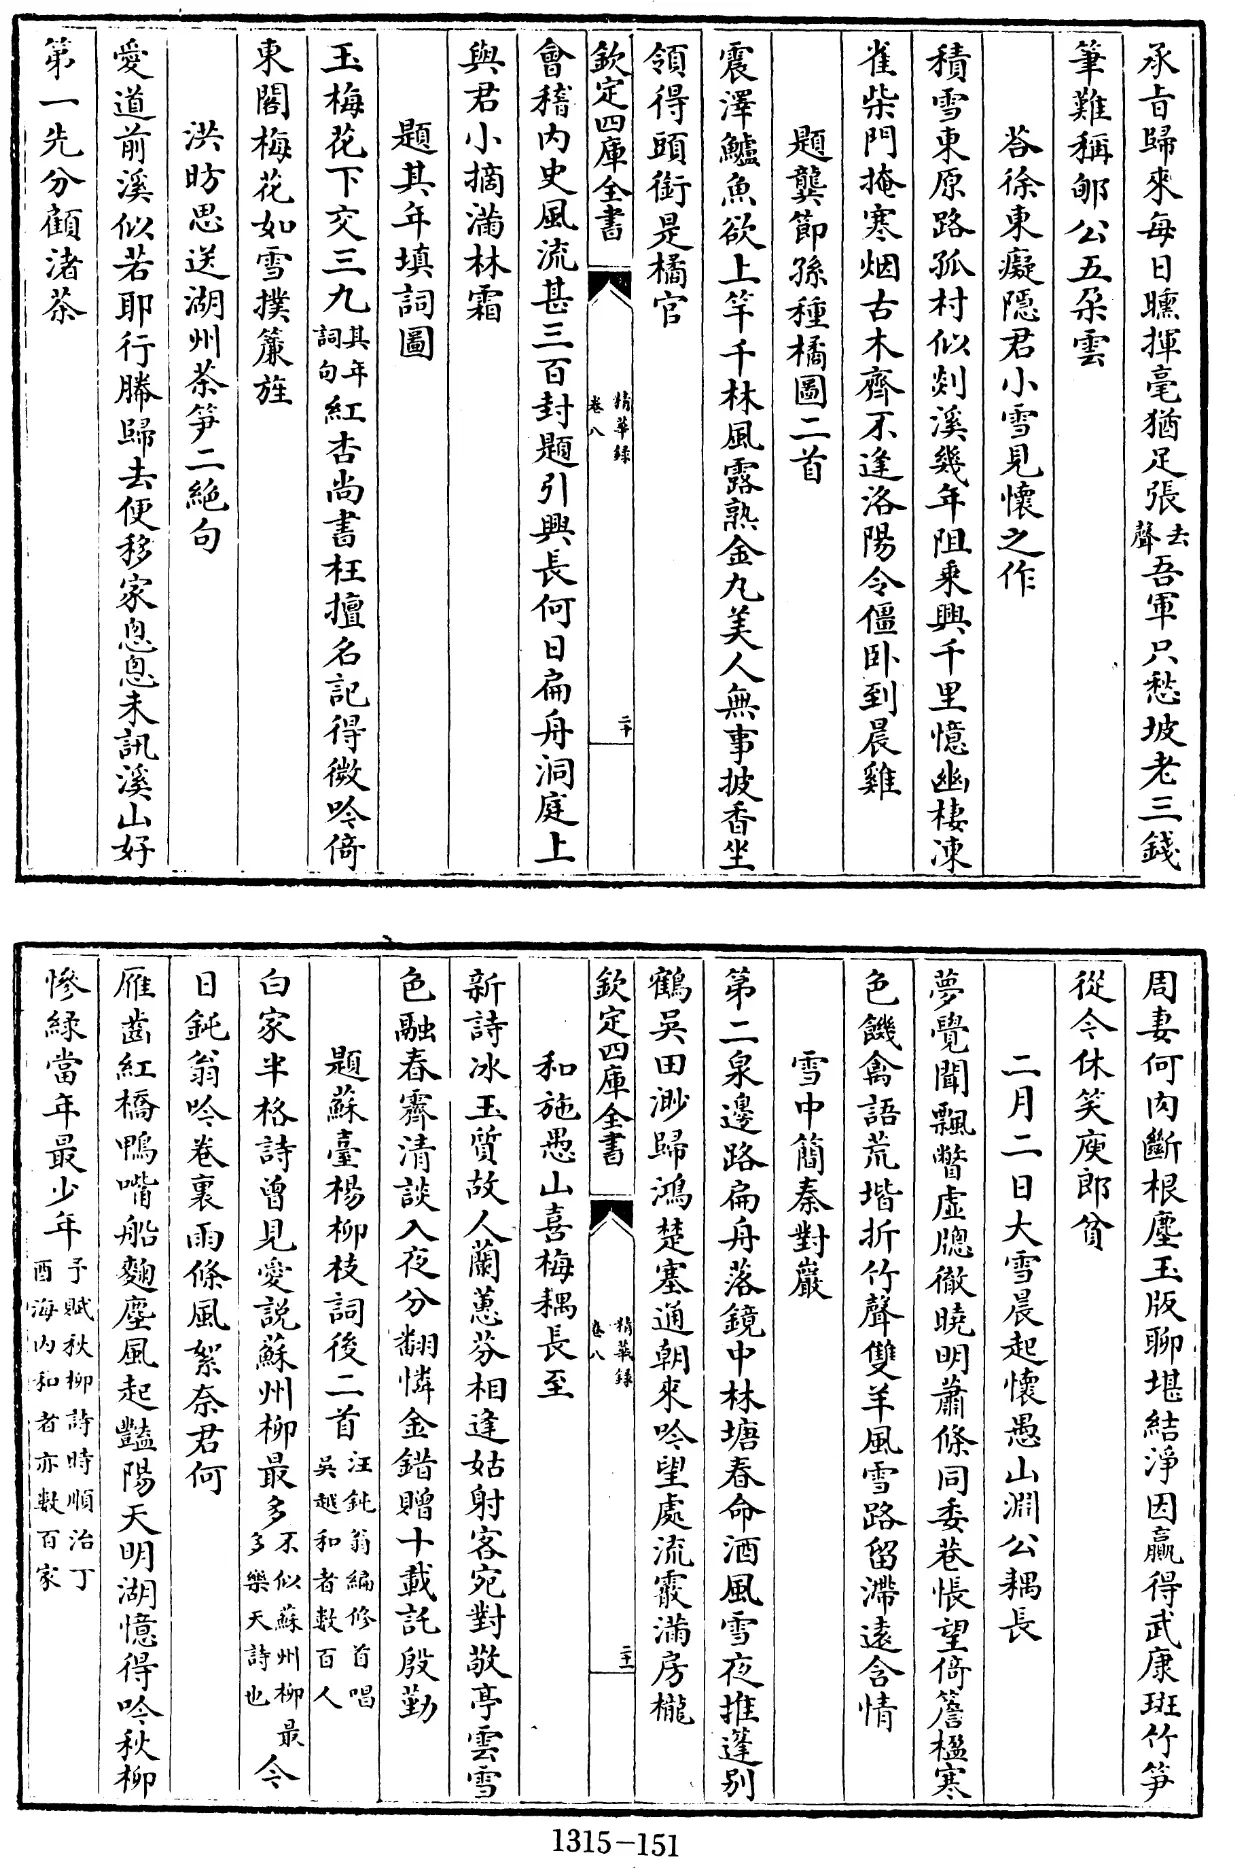 承旨歸來每日曛揮毫猶足張去聲吾軍只愁坡老三錢
筆難稱郇公五朶雲
答徐東癡隱君小雪見懷之作
積雪東原路孤村似剡溪幾年阻乘興千里憶幽棲凍
雀柴門掩寒烟古木齊不逢洛陽令僵臥到晨雞
題龔節孫種橘圖二首
震澤鱸魚欲上竿千林風露熟金丸美人無事披香坐
領得頭銜是橘官
欽定四庫全書
精華錄
卷八
二十
會稽內史風流甚三百封題引興長何日扁舟洞庭上
與君小摘滿林霜
題其年填詞圖
玉梅花下交三九其年詞句紅杏尚書枉擅名記得微吟倚
東閣梅花如雪撲簾旌
洪昉思送湖州茶笋二絕句
愛道前溪似若耶行縢歸去便移家怱怱未訊溪山好
第一先分顧渚茶
周妻何肉斷根塵玉版聊堪結淨因贏得武康斑竹笋
從今休笑庾郎貧
二月二日大雪晨起懷愚山淵公耦長
夢覺聞飄瞥虛牕徹曉明蕭條同委巷悵望倚簷楹寒
色饑禽語荒堦折竹聲雙羊風雪路留滯遠含情
雪中簡秦對巖
第二泉邊路扁舟落鏡中林塘春命酒風雪夜推篷別
鶴吳田渺歸鴻楚塞通朝來吟望處流霰滿房櫳
欽定四庫全書
精華錄
卷八
二十一
和施愚山喜梅耦長至
新詩冰玉質故人蘭蕙芬相逢姑射客宛對敬亭雲雪
色融春霽清談入夜分翻憐金錯贈十載託殷勤
題蘇臺楊柳枝詞後二首汪鈍翁編修首唱吳越和者數百人
白家半格詩曾見愛說蘇州柳最多不似蘇州柳最多樂天詩也今
日鈍翁吟卷裏雨條風絮奈君何
雁齒紅橋鴨嘴船麴塵風起豔陽天明湖憶得吟秋柳
慘綠當年最少年予賦秋柳詩時順治丁酉海內和者亦數百家
1315-151